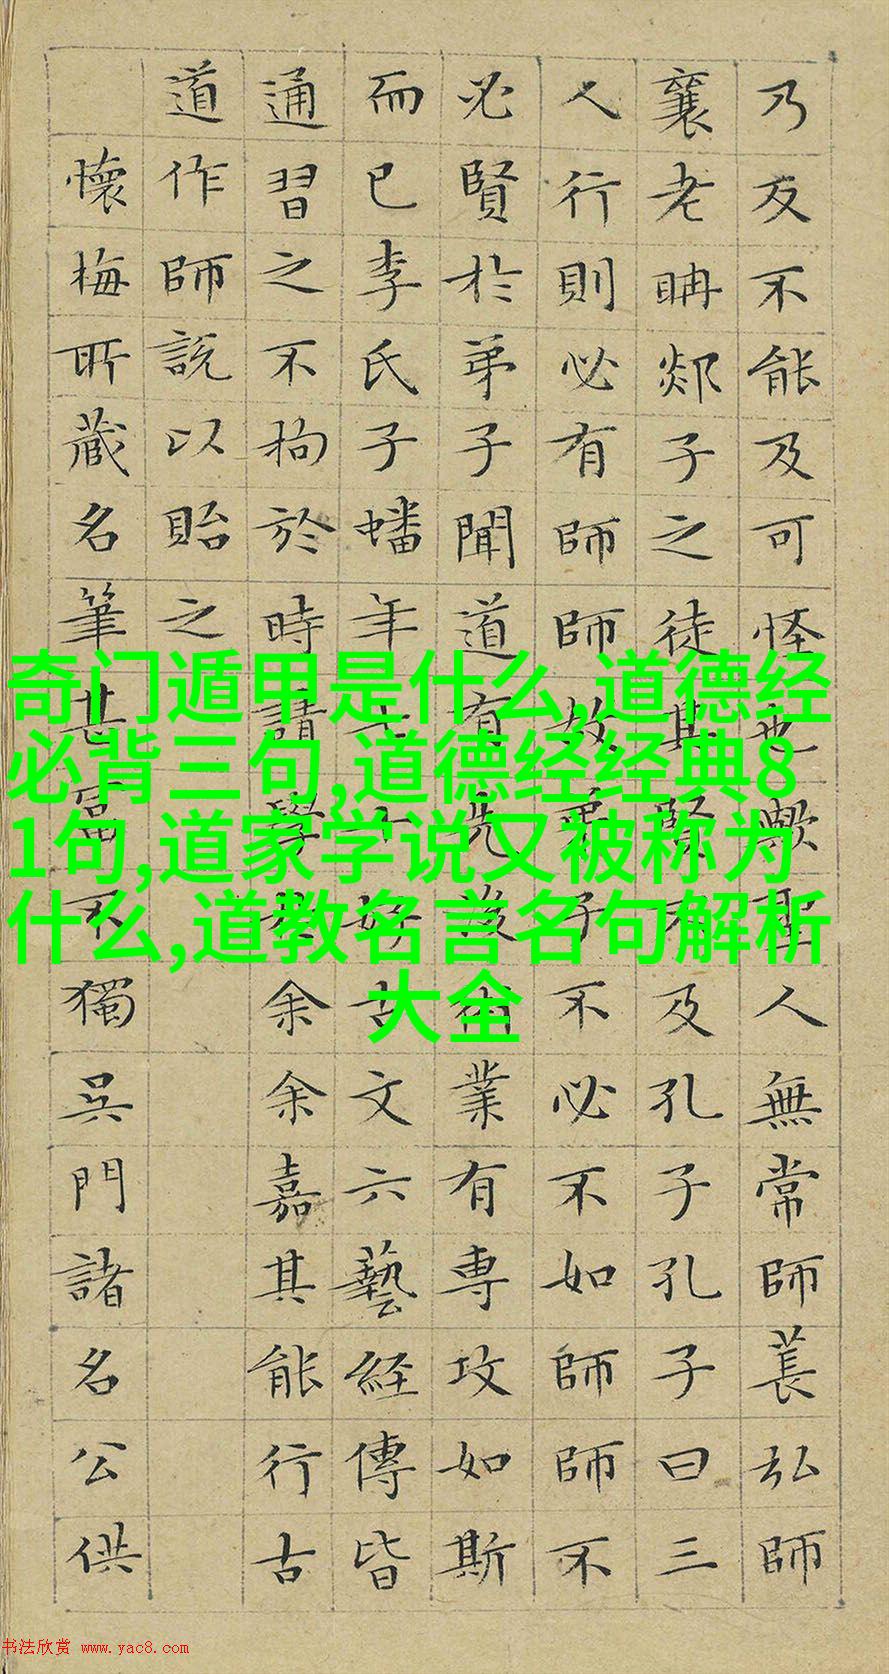 乃反不能及可怪也歟聖人無常師萇弘師
襄老聃郯子之徒其賢不及孔子孔子曰三
人行則必有師師故弟子不必不如師師不
必賢於弟子聞道有先後術業有專攻如斯
而已李氏子蟠年十七好古文六藝經傳皆
通習之不拘於時請學於余余嘉其能行古
道作師說以貽之
懷梅所藏名筆甚富不獨吳門諸名公供
奇门遁甲是什么,道德经
必背三句,道德经经典8
1句,道家学说又被称为
什么,道教名言名句解析
大全
书法欣赏 www.yac8.com